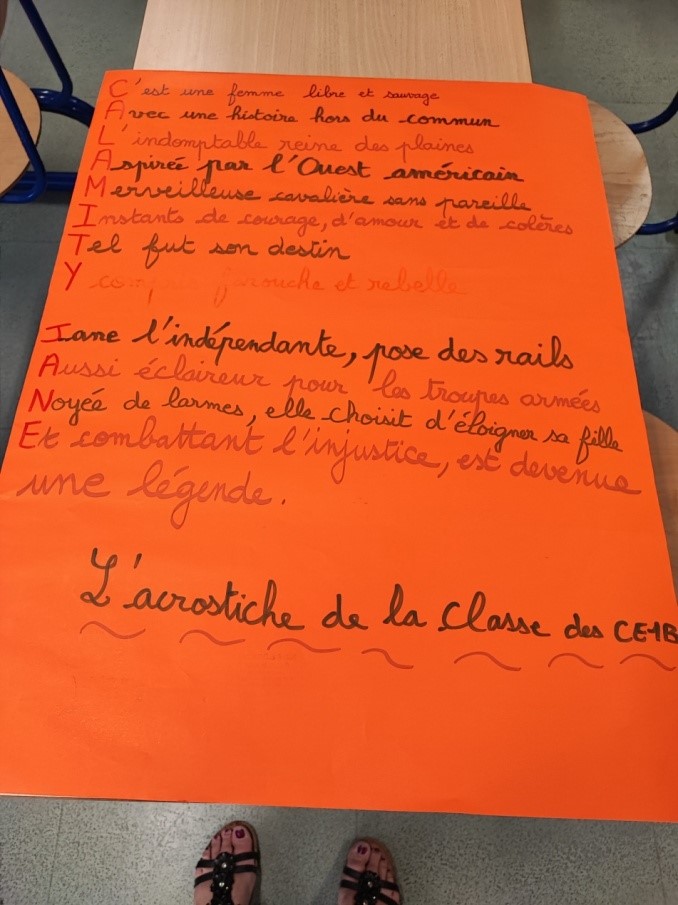 C'est une femme libre et sauvage
Avec une histoire hors du commun
L'indomptable reine des plaines
Aspirée par l'Ouest américain
Merveilleuse cavalière sans pareille
Instants de courage, d'amour et de colères
Tel fut son destin
Y compris farouche et rebelle
Jane l'indépendante, pose des rails
Aussi éclaireur pour les troupes armées
Noyée de larmes, elle choisit d'éloigner sa fille
Et combattant l'injustice, est devenue
une légende.
L'acrostiche de la classe des CE1B